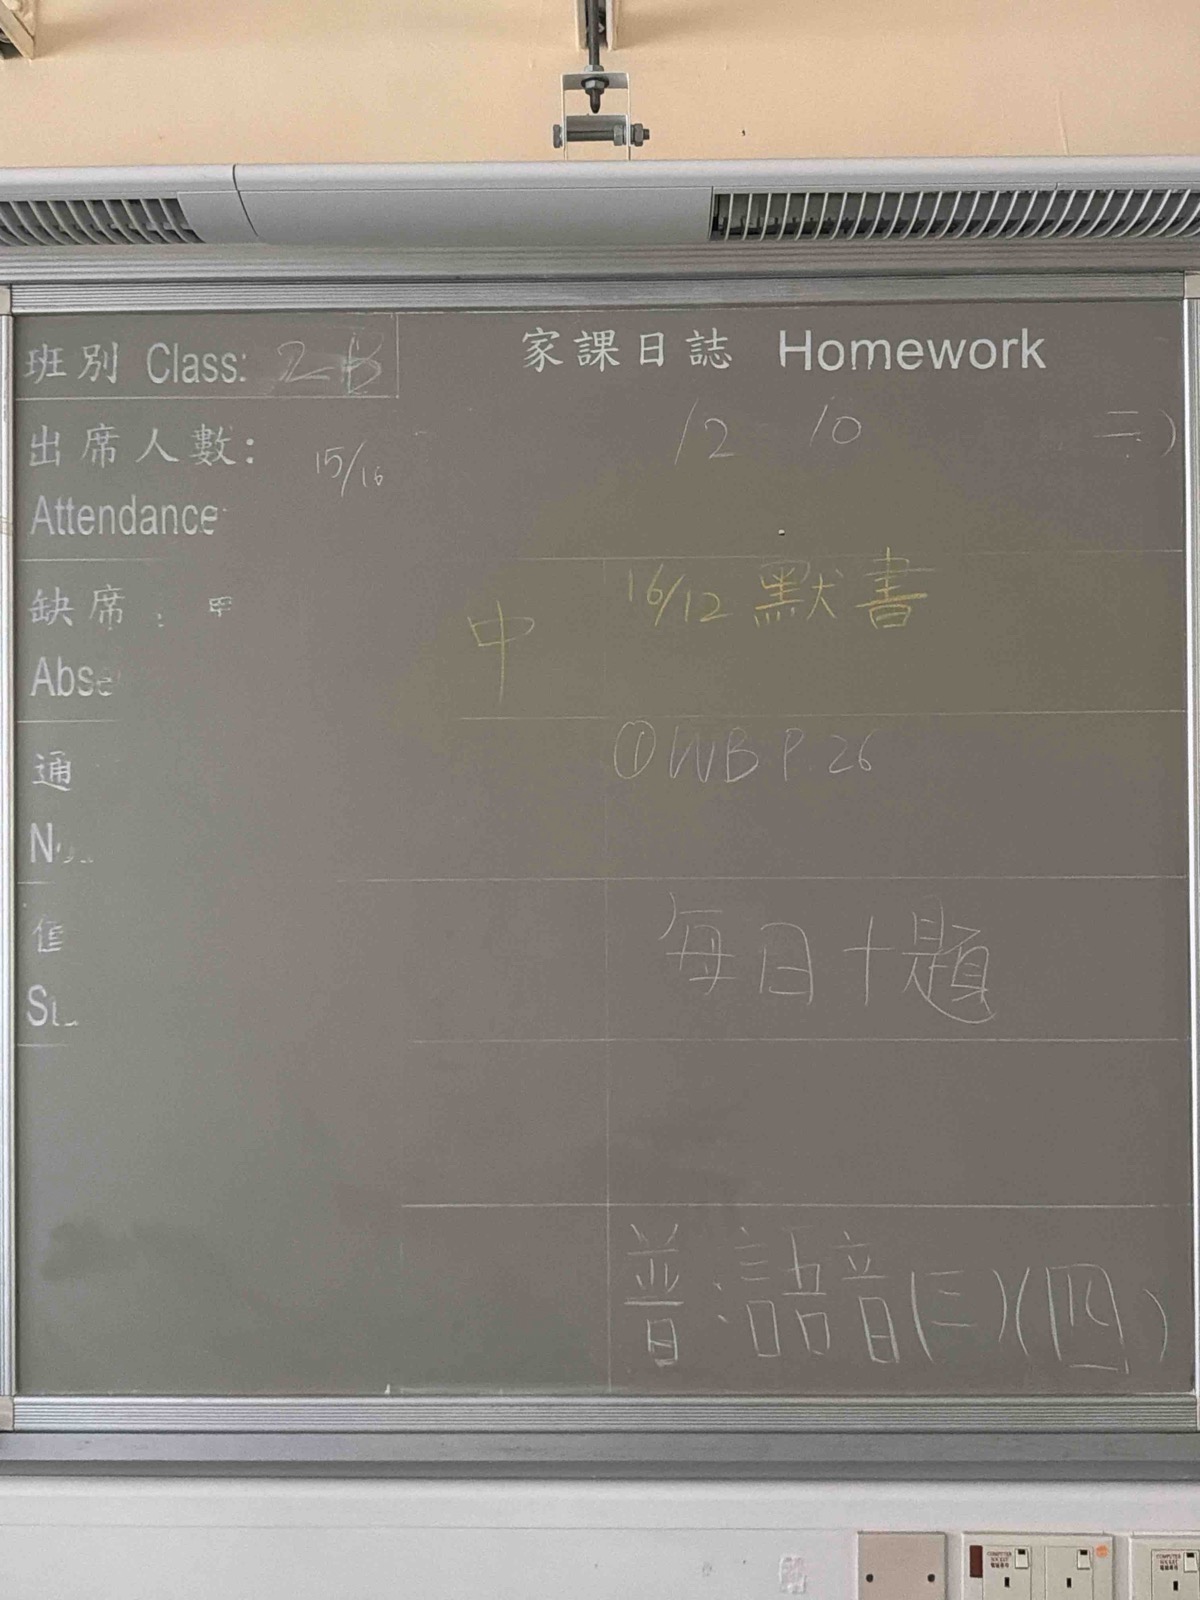 班別 Class: 2B
家課日誌 Homework
出席人數: 15/16
Attendance
12 10 二)
缺席:
Abse
中 16/12 默書
通
① WB P.26
每日十題
普:語音(三)(四)